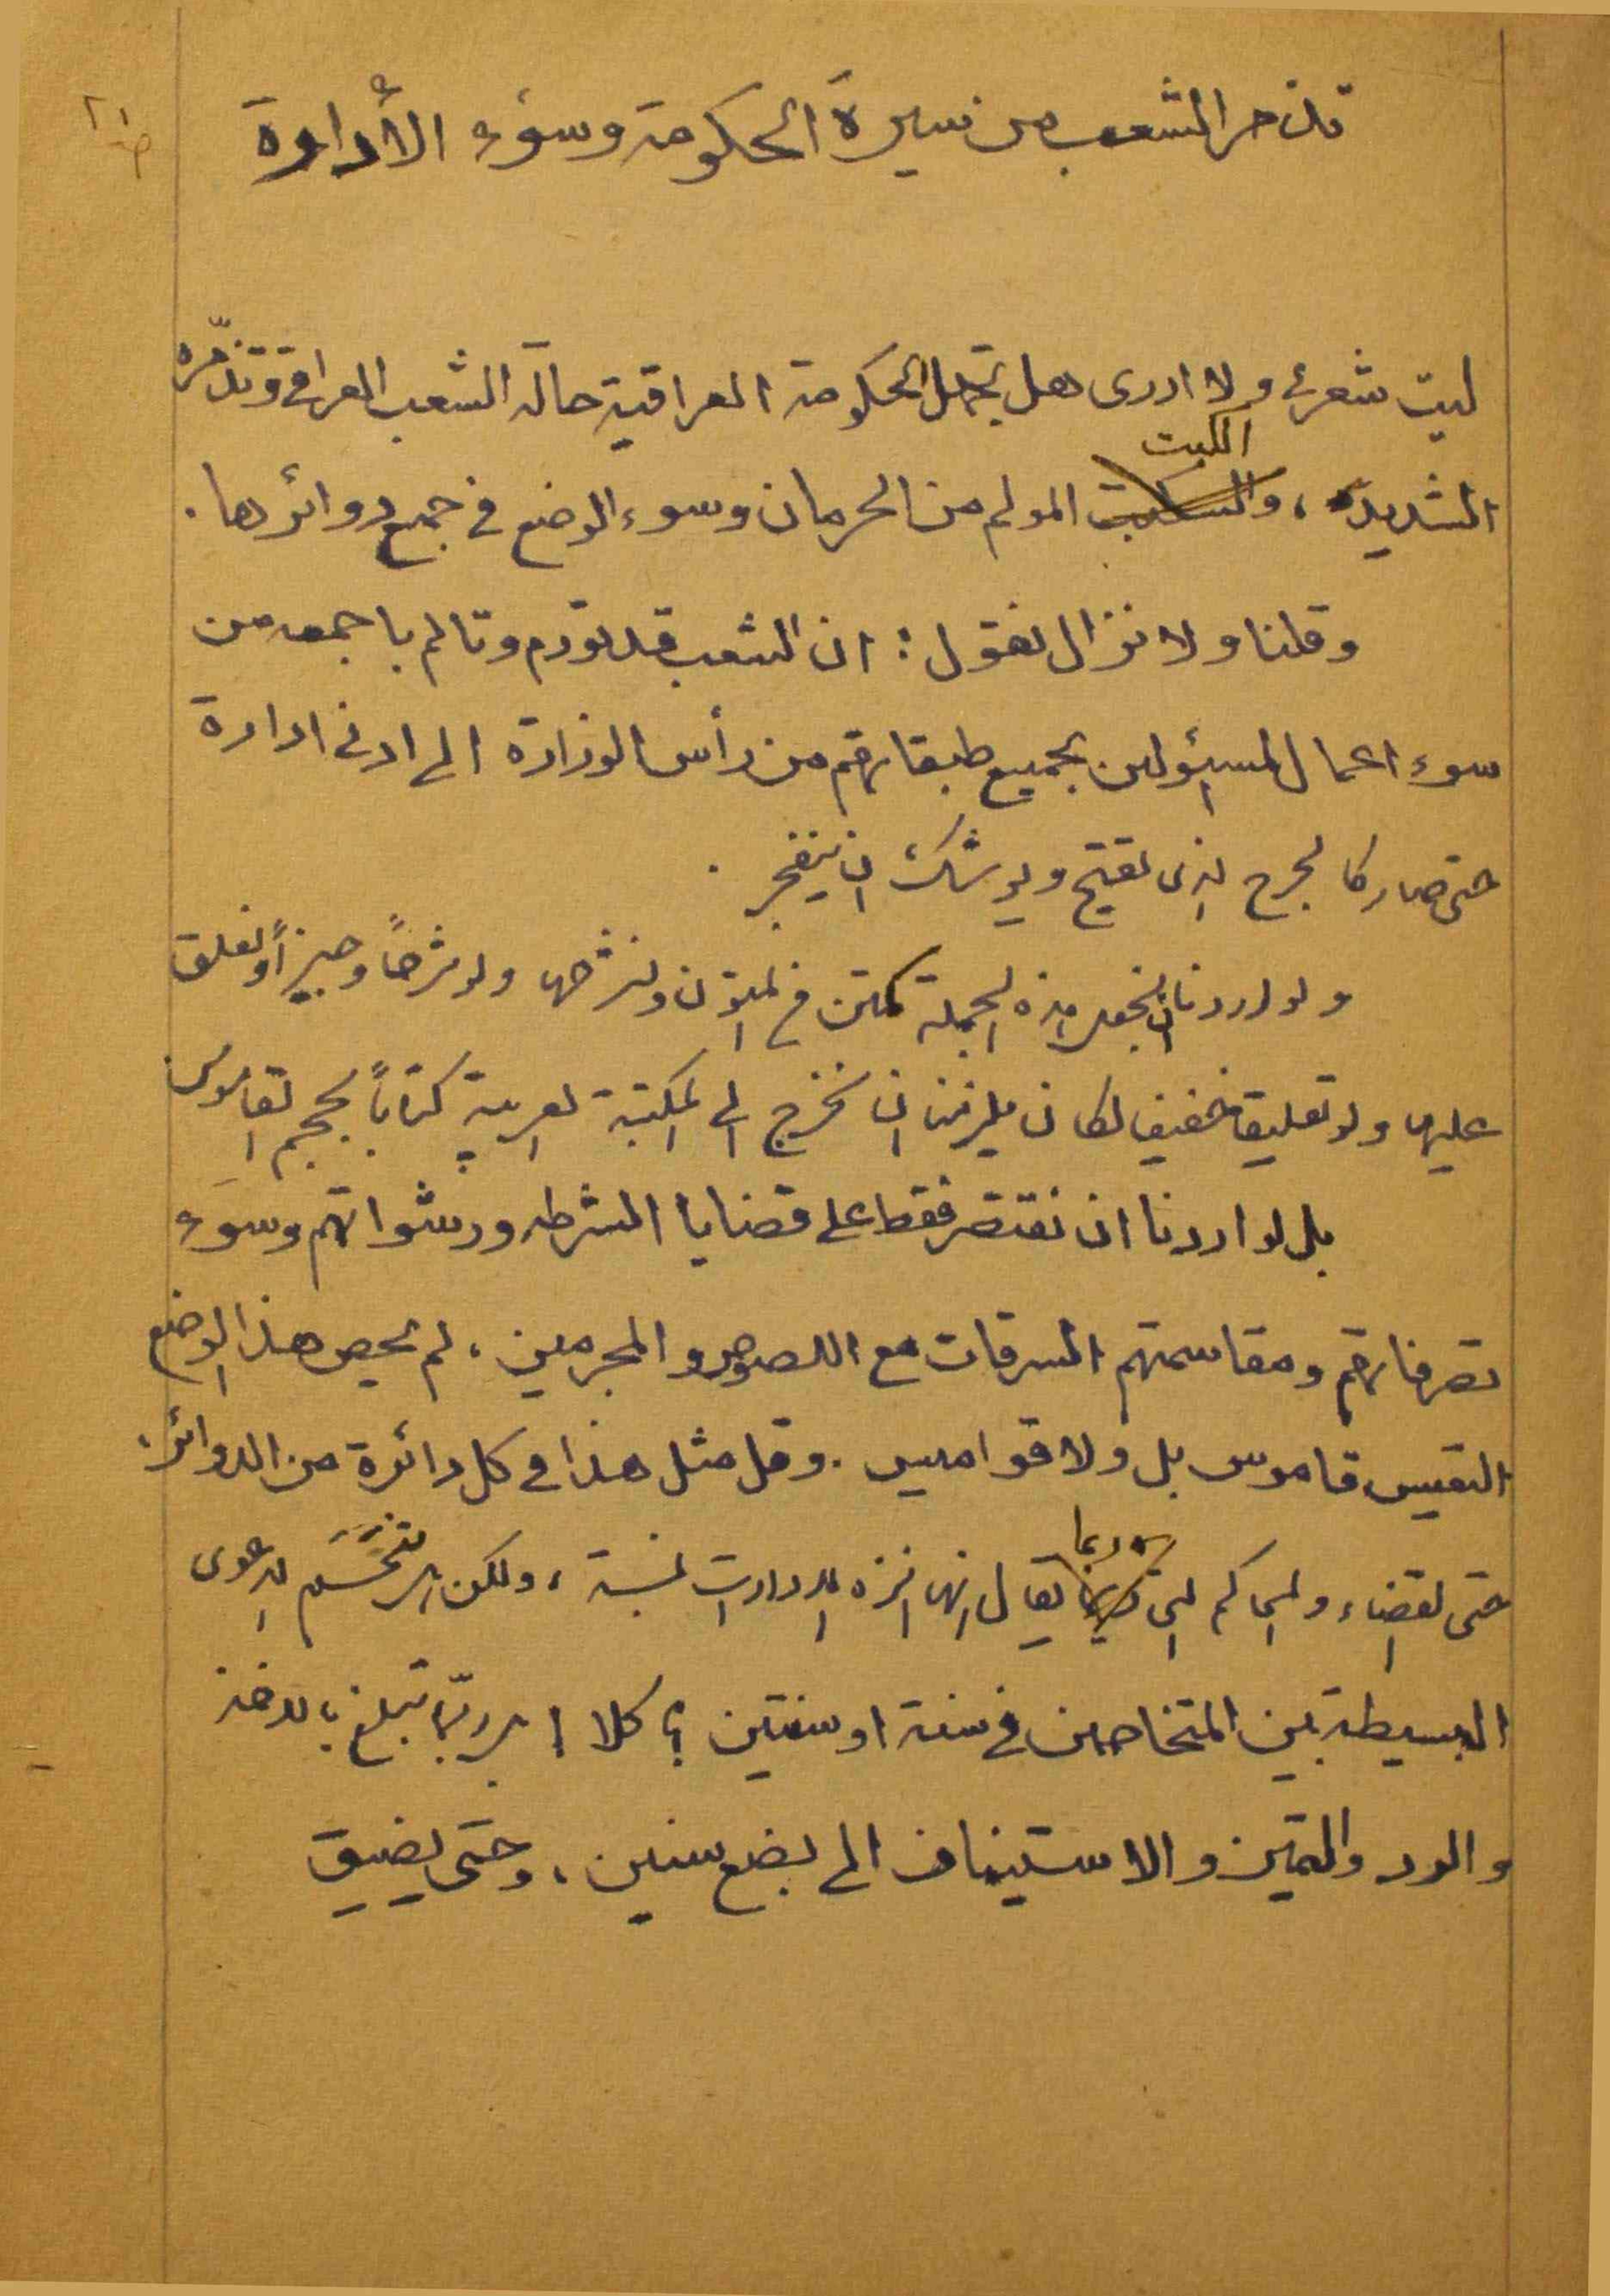 تذمر الشعب من سيرة الحكومة وسوء الأدارة
ليت شعري ولا ادرى هل تجهل الحكومة العراقية حالة الشعب العراقي وتذمّره
الكبت
الشديد، والمولم من الحرمان وسوء الوضع في جميع دوائرها.
وقلنا ولا نزال نقول: ان الشعب قد تورم وتالم باجمعه من
سوء اعمال المسؤلين بجميع طبقاتهم من رأس الوزارة الى ادنى ادارة
حتى صار كالجرح الذى تقيح ويوشك ان ينفجر.
ولو اردنا ان نجعل هذه الجملة كمتن في المتون ونشرحها ولو شرحاً وجيزاً ونعلق
عليها ولو تعليقا خفيفا لكان يلزمنا ان نخرج الى المكتبة العربية كتاباً بحجم القاموس
بل لو اردنا ان نقتصر فقط على قضايا الشرطه ورشواتهم وسوء
تصرفاتهم ومقاسمتهم السرقات مع اللصوص والمجرمين، لم يحص هذا الوضع
التعيس قاموس بل ولا قواميس. وقل مثل هذا في كل دائرة من الدوائر.
ربما
حتى القضاء والمحاكم التي يقال انها انزه الادارات نسبة، ولكن هل تنحسم الدعوى
البسيطة بين المتخاصمين في سنة او سنتين؟ كلا! بل ربّما تبلغ بالاخذ
والرد والتميز والاستيناف الى بضع سنين، وحتى يضيق